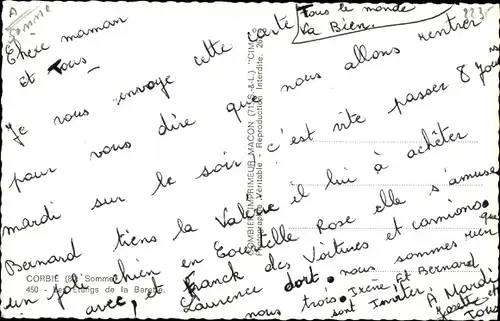 A
Somme
223
Tous le monde
Va Bien.
Chere maman
et Tous
Je vous envoye cette carte
pour vous dire que
nous allons rentrer
mardi sur le soir c'est vite passer 8 Jours
Bernard tiens la Valerie il lui à achêter
un joli chien en Rose elle s'amuse
avec, et Franck des Voitures et camions.
Laurence dort. nous sommes rien que
nous trois. Irène Et Bernard
sont Inviter. A Mardi
Josette et
Tous
CORBIE (80 Somme)
450 - Les Etangs de la Barette.
COMBIER IMPRIMEUR MACON (71 S.-&-L.) "CIM"
Photographie Véritable - Reproduction Interdite.